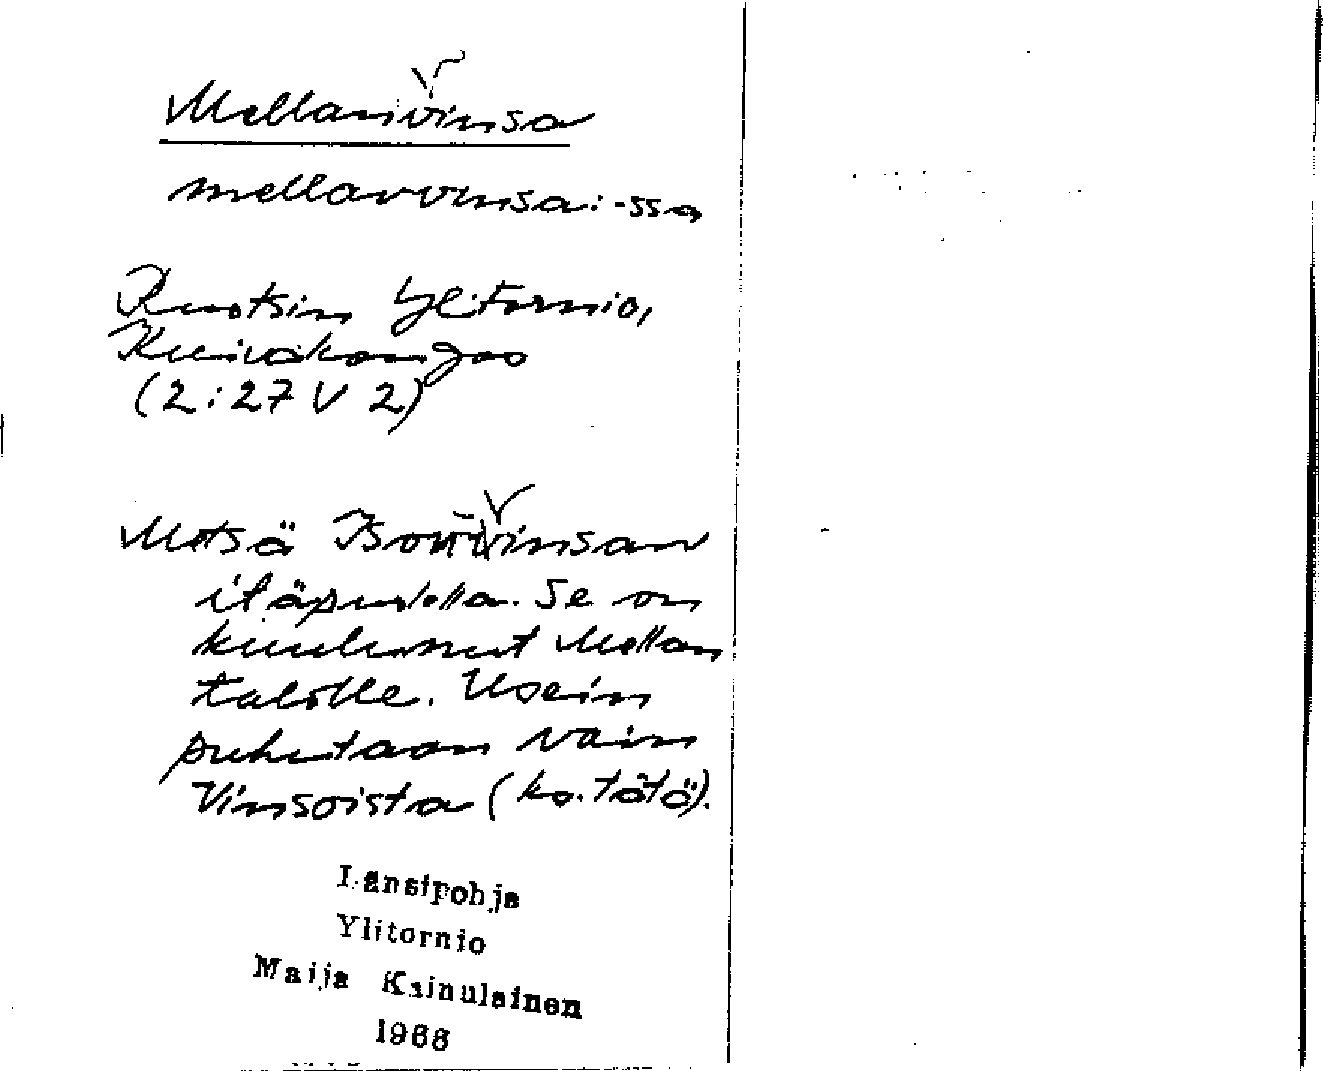 Mellanvinsa
mellavvinsa: -ssa
Ruotsin Ylitornio,
Kuivakangas
(2:27 V 2)
Metsä Isonvinsan
itäpuolella. Se on
kuulunut Mellan
talolle. Usein
puhutaan vain
Vinsoista (ks. tätä).
Länsipohja
Ylitornio
Maija Kainulainen
1966